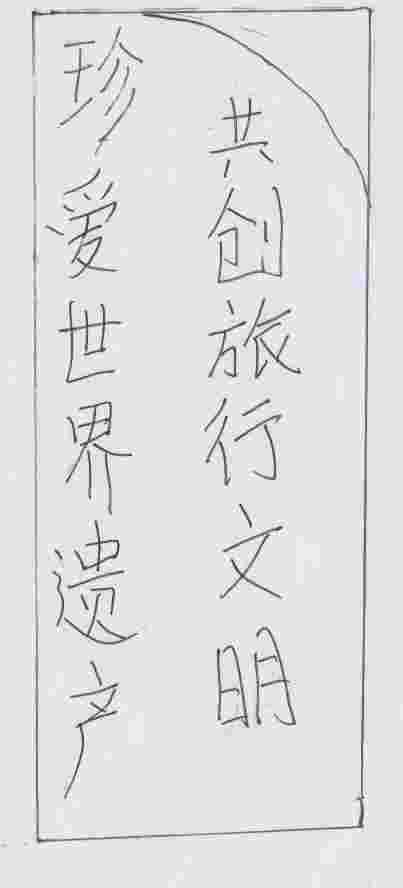 珍爱世界遗产
共创旅行文明